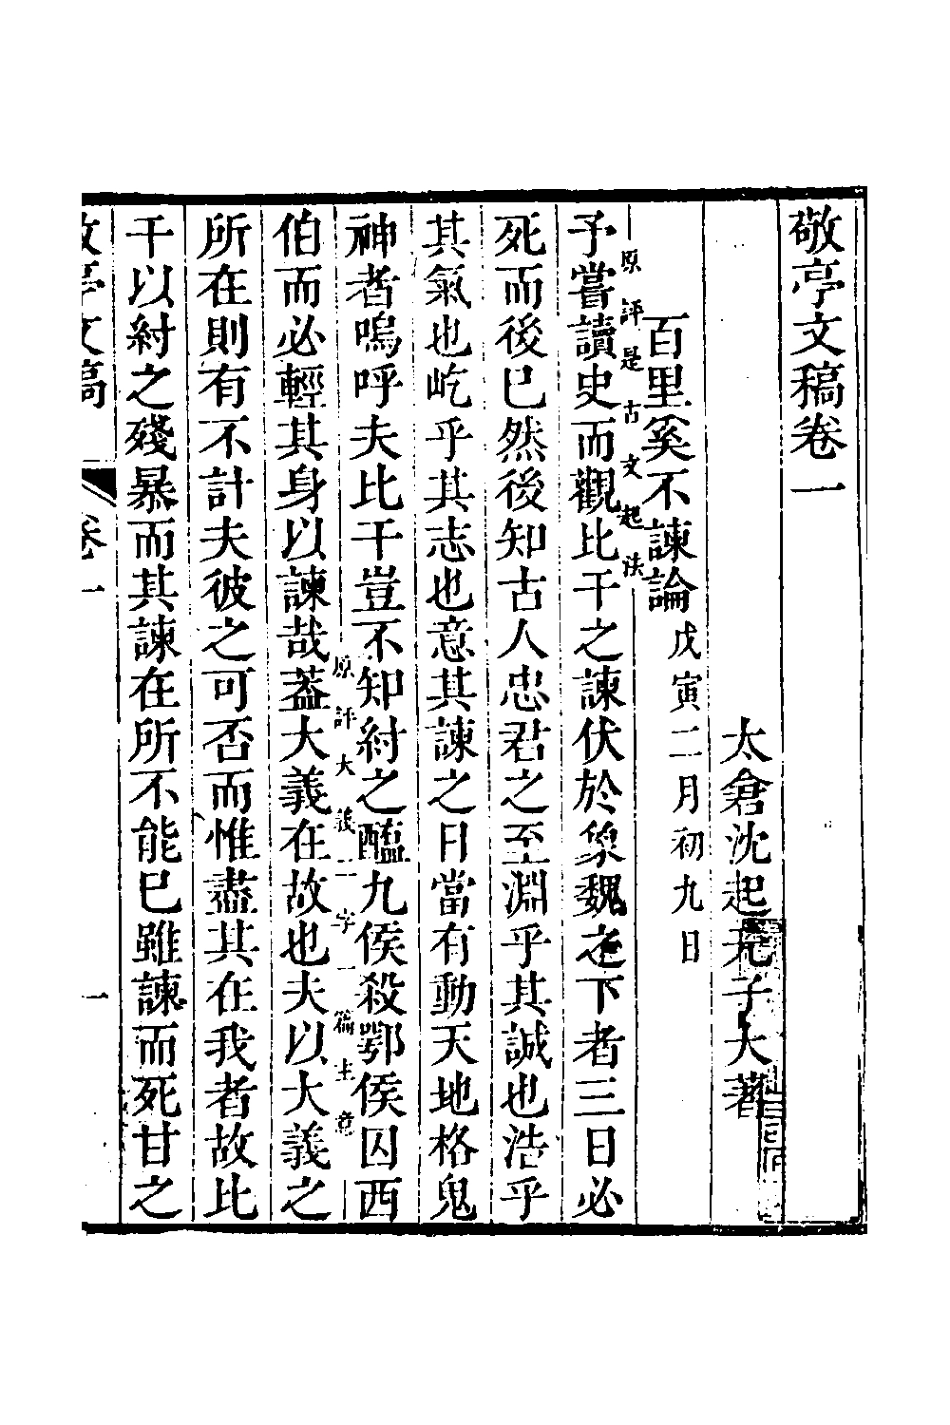 敬亭文稿卷一
太倉沈起元子大著
百里奚不諫論戊寅二月初九日
原評是古文起法
予嘗讀史而觀比干之諫伏於象魏之下者三日必
死而後已然後知古人忠君之至淵乎其誠也浩乎
其氣也屹乎其志也意其諫之日當有動天地格鬼
神者嗚呼夫比干豈不知紂之醢九侯殺鄂侯囚西
原評大義二字一篇主意
伯而必輕其身以諫哉蓋大義在故也夫以大義之
所在則有不計夫彼之可否而惟盡其在我者故比
干以紂之殘暴而其諫在所不能已雖諫而死甘之
敬亭文稿
卷一
一